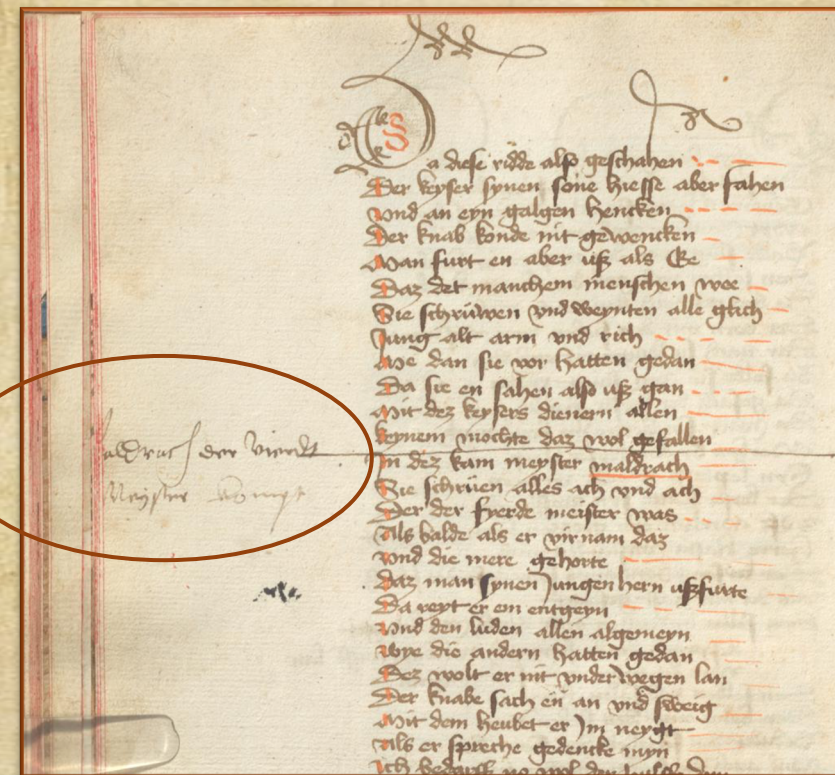 Da diese ridde also geschahen
Der keyser synen sone hiesse aber fahen
Vnd an eyn galgen hencken
Der knab konde nit gewencken
Man furt en aber uß als Ee
Daz det manchem menschen wee
Sie schruwen vnd weynten alle glich
Jung alt arm vnd rich
Me dan sie vor hatten gedan
Da sie en sahen also uß gan
Mit dez keysers dienern allen
Keynem mochte daz wol gefallen
maldrach der vierdt
Meyster kompt
In dez kam meyster maldrach
Sie schruen alles ach vnd ach
Der der fyerde meister was
Als balde als er virnam daz
Vnd die mere gehorte
Daz man synen Jungen hern ußfurte
Da reyt er em entgeyn
Vnd den luden allen algemeyn
Wye die andern hatten gedan
Dez wolt er nit vnderwegen lan
Der knabe sach en an vnd sweig
Mit dem heubet er Jm neygt
Als er spreche gedencke myn
Ich bedarff